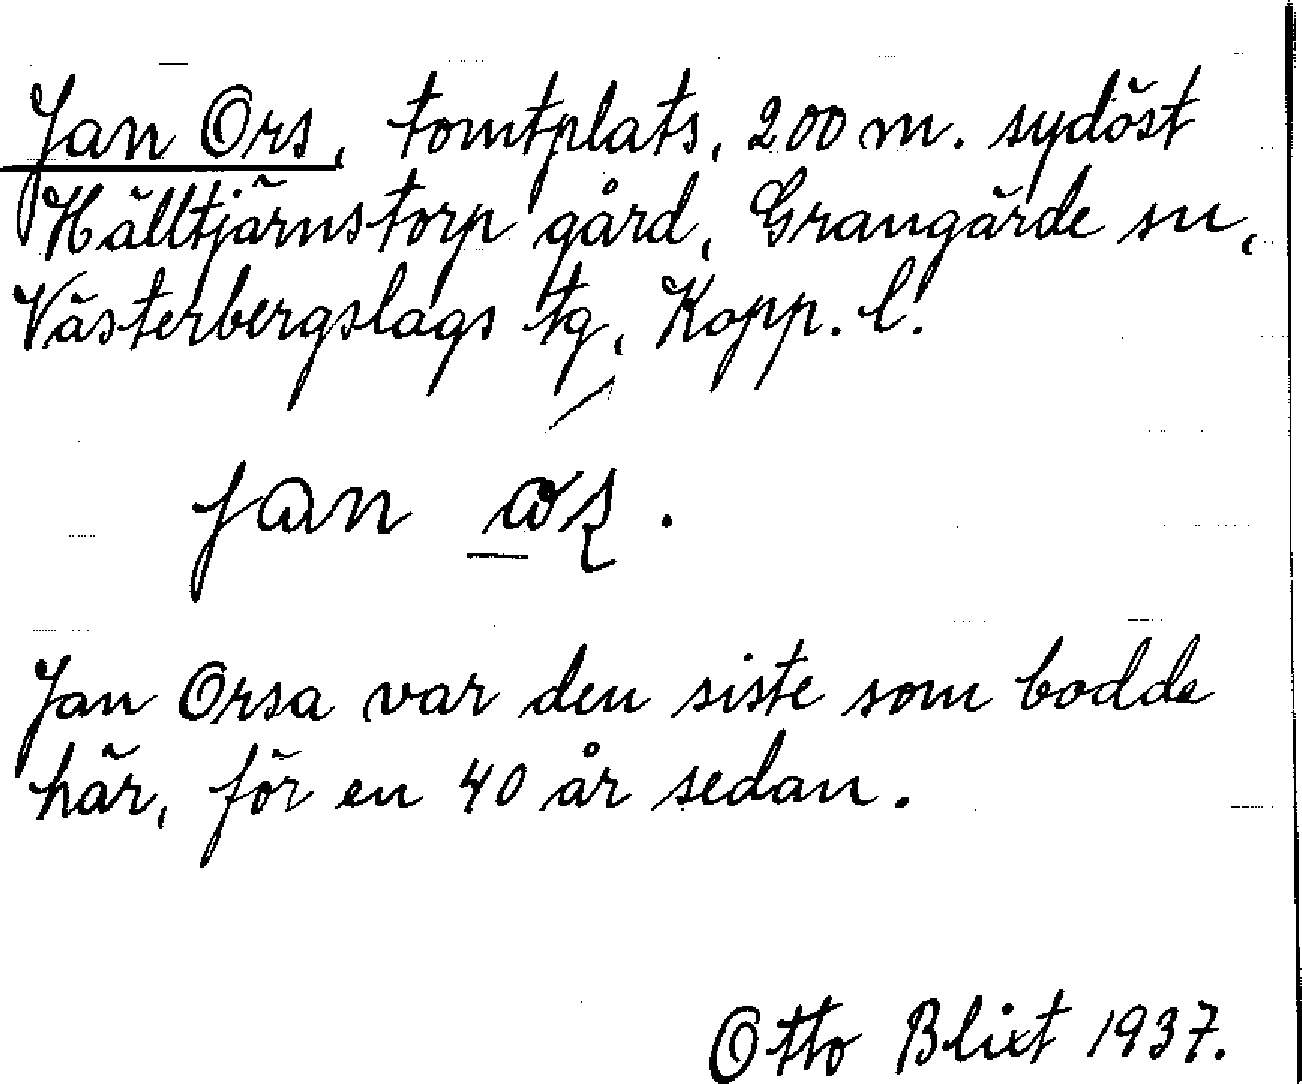 Jan Ors, tomtplats, 200 m. sydöst
Hälltjärnstorp gård, Grangärde sn,
Västerbergslags tg, Kopp. l.
jan
Jan Orsa var den siste som bodde
här, för en 40 år sedan.
Otto Blixt 1937.